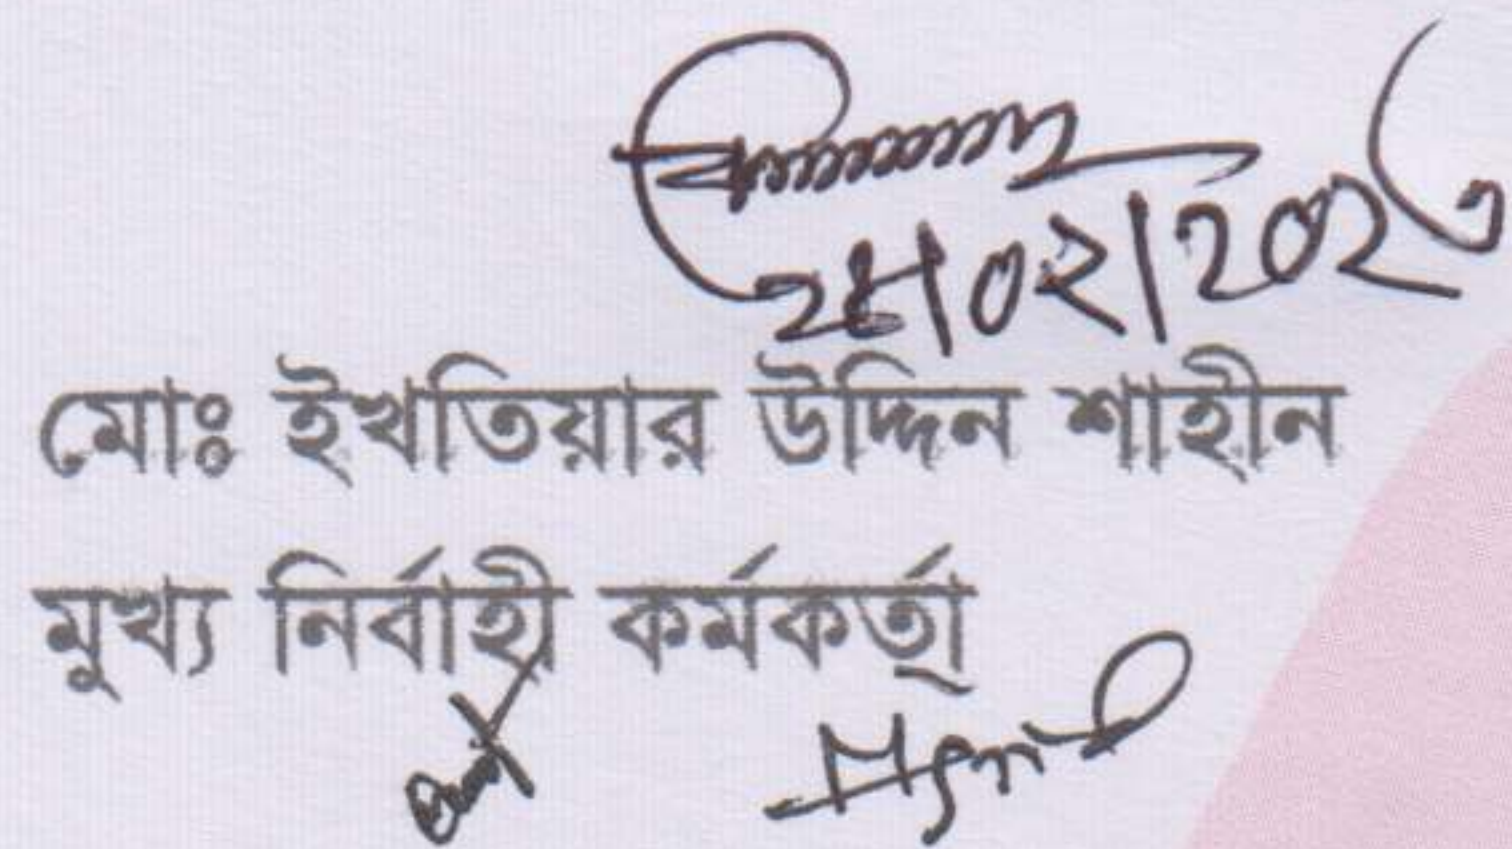 ০২/২০২৩
মোঃ ইখতিয়ার উদ্দিন শাহীন
মুখ্য নির্বাহী কর্মকর্তা